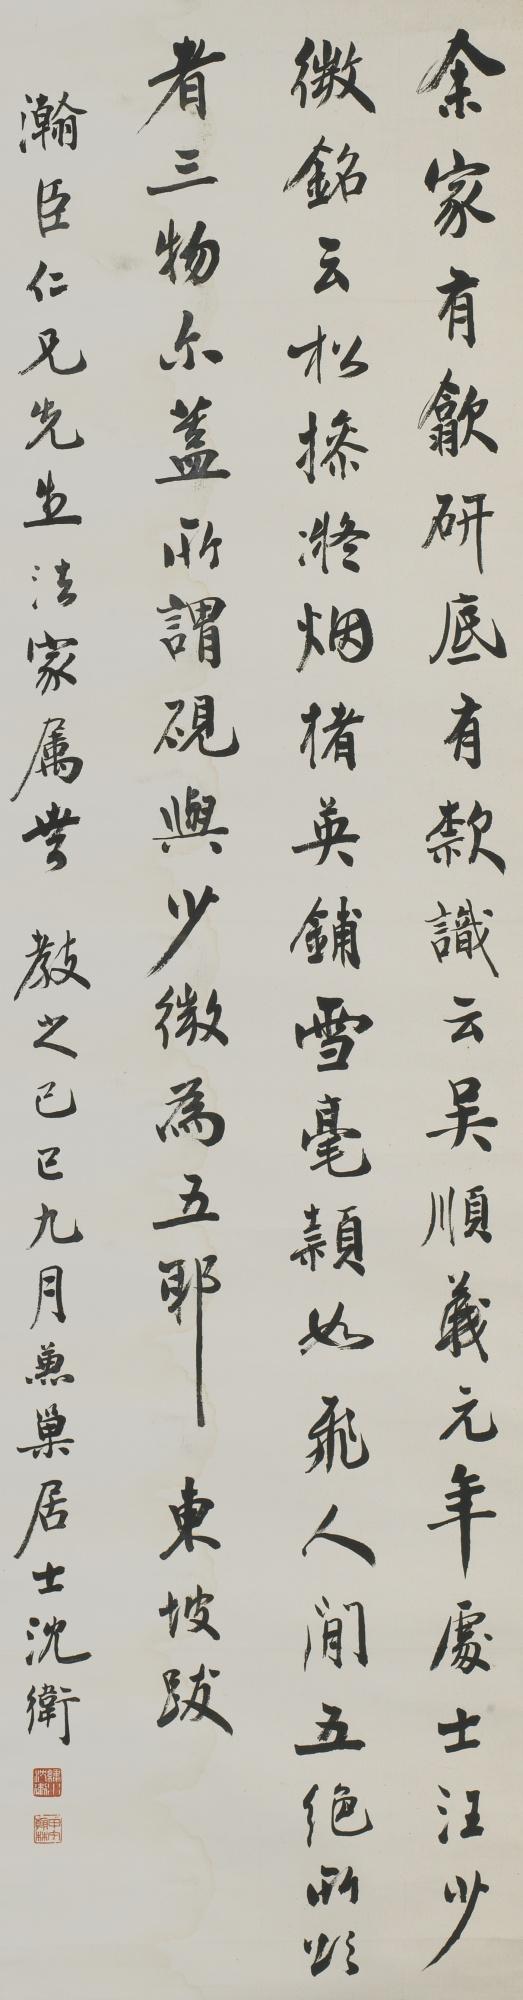 余家有歙研底有款識云吳順義元年處士汪少
微銘云松操凝烟楮英鋪雪毫穎如飛人間五絕所頌
者三物尒蓋所謂硯與少微為五耶 東坡跋
瀚臣仁兄先生法家属書 教之己巳九月兼巢居士沈衛